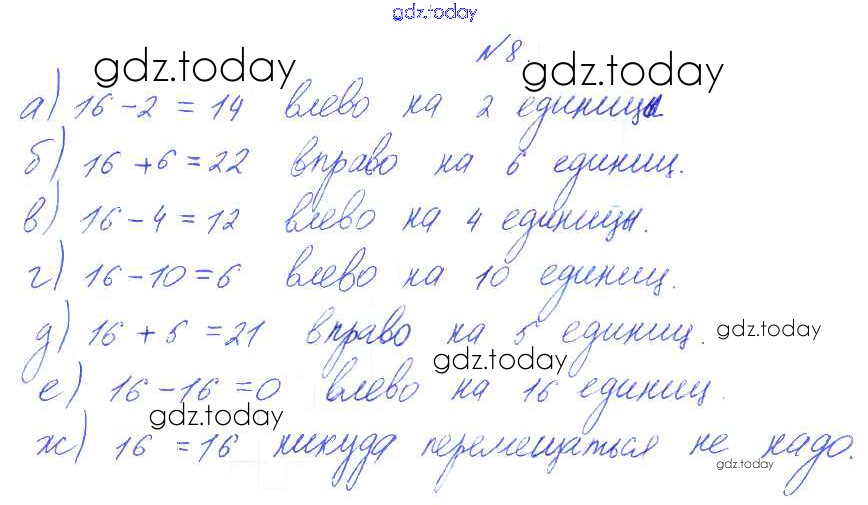 gdz.today
№8.
gdz.today gdz.today
а) 16-2 = 14 влево на 2 единицы
б) 16 +6 = 22 вправо на 6 единиц.
в) 16-4 = 12 влево на 4 единицы.
г) 16-10=6 влево на 10 единиц.
д) 16 + 5 = 21 вправо на 5 единиц. gdz.today
gdz.today
е) 16-16 = 0 влево на 16 единиц.
gdz.today
ж) 16 = 16 никуда перемещаться не надо.
gdz.today